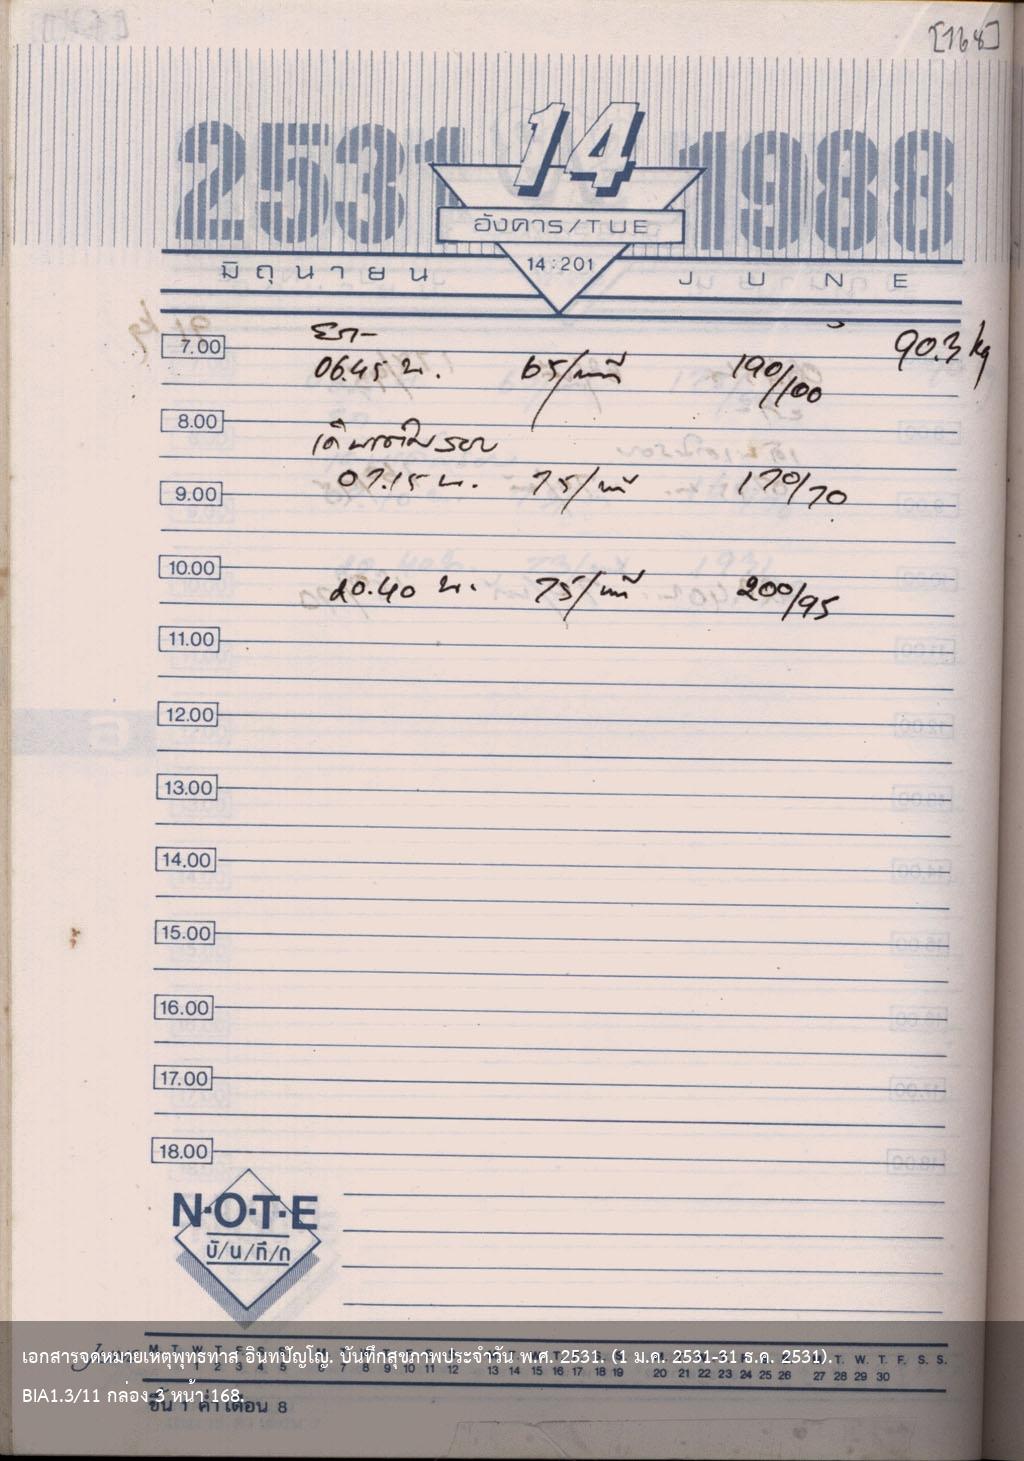 [168]
2531 14 1988
อังคาร/TUE
14:201
มิถุนายน JUNE
90.3 kg
7.00
06.45 น. 65/นาที 190/100
8.00
07.15 น. 75/นาที 170/70
9.00
10.00
20.40 น. 75/นาที 200/95
11.00
12.00
13.00
14.00
15.00
16.00
17.00
18.00
N·O·T·E
บั/น/ทึ/ก
เอกสารจดหมายเหตุพุทธทาส อินทปัญโญ. บันทึกสุขภาพประจำวัน พ.ศ. 2531. (1 ม.ค. 2531-31 ธ.ค. 2531).
BIA1.3/11 กล่อง 3 หน้า 168.
ขึ้น 1 ค่ำ เดือน 8